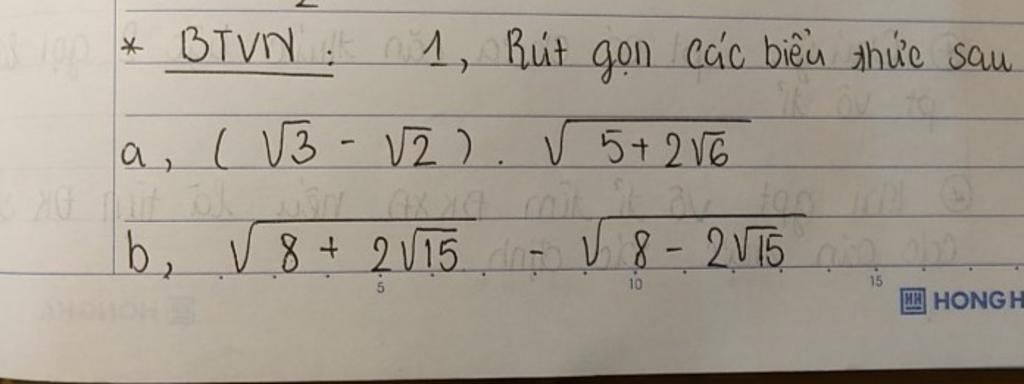 * BTVN : 1, Rút gọn các biểu thức sau
a, ( √3 - √2 ) . √(5 + 2√6)
b, √(8 + 2√15) - √(8 - 2√15)
5 10 15
HH HONG H